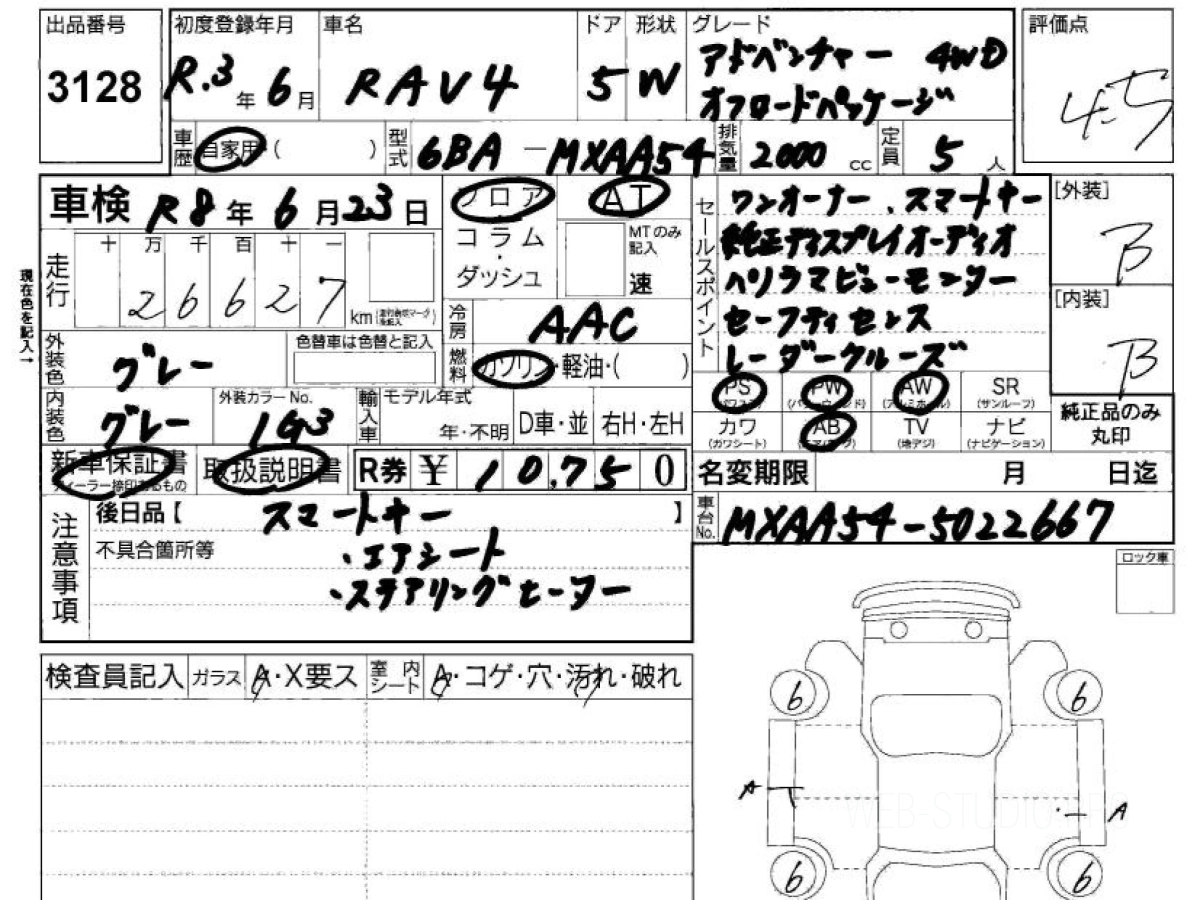 出品番号
3128
初度登録年月
R.3年6月
車名
RAV4
ドア
5
形状
W
グレード
アドベンチャー 4WD
オフロードパッケージ
評価点
4.5
車歴
自家用・( )
型式
6BA-MXAA54
排気量
2000 cc
定員
5人
車検 R8年6月23日
走行
十 万 千 百 十 一
2 6 6 2 7 km
現在色を記入→
フロア
・
コラム
・
ダッシュ
AT
MTのみ記入
速
冷房
AAC
燃料
ガソリン・軽油・( )
外装色
グレー
色替車は色替と記入
内装色
グレー
外装カラーNo.
1G3
輸入車
モデル年式
年・不明
D車・並
右H・左H
セールスポイント
ワンオーナー、スマートキー
純正ディスプレイオーディオ
パノラマビューモニター
セーフティセンス
レーダークルーズ
[外装]
B
[内装]
B
PS
(パワステ)
PW
(パワーウィンド)
AW
(アルミホイル)
SR
(サンルーフ)
カワ
(カワシート)
AB
(エアバッグ)
TV
(地デジ)
ナビ
(ナビゲーション)
純正品のみ
丸印
新車保証書
ディーラー捺印あるもの
取扱説明書
R券 ¥ 10,750
名変期限 月 日迄
車台No.
MXAA54-5022667
注意事項
後日品【 スマートキー 】
不具合箇所等
・エアシート
・ステアリングヒーター
ロック車
検査員記入
ガラス
A・X要ス
室内シート
A・コゲ・穴・汚れ・破れ
6
6
A
A
WEB-STUDIO
6
6